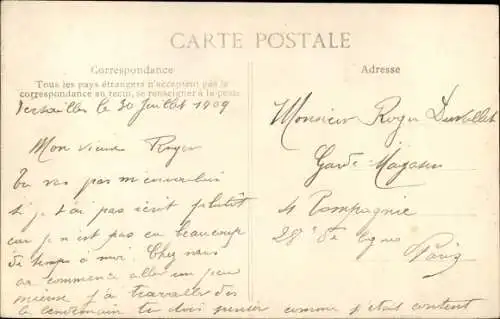 CARTE POSTALE
Correspondance
Tous les pays étrangers n'acceptant pas la
correspondance au recto, se renseigner à la poste
Adresse
Versailles le 30 Juillet 1909
Mon vieux Roger
tu vas pas m'en vouloir
si je t'ai pas écrit plutôt
car je n'est pas eu beaucoup
de temps à moi. Chez nous
ça commence aller un peu
mieux j'ai travaillé dès
le lendemain tu dois penser comme j'étais content
Monsieur Roger
Garde-Magasin
4 Compagnie
28e de ligne
Paris